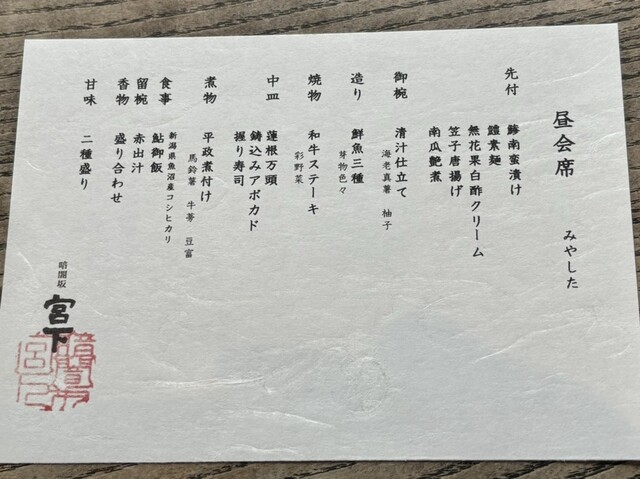 昼会席 みやした
先付 鯵南蛮漬け
鱧素麺
無花果白酢クリーム
笠子唐揚げ
南瓜艶煮
御椀 清汁仕立て
海老真薯 柚子
造り 鮮魚三種
芽物色々
焼物 和牛ステーキ
彩野菜
中皿 蓮根万頭
鋳込みアボカド
握り寿司
煮物 平政煮付け
馬鈴薯 牛蒡 豆富
食事 鮎御飯
新潟県魚沼産コシヒカリ
留椀 赤出汁
香物 盛り合わせ
甘味 二種盛り
暗闇坂
宮下